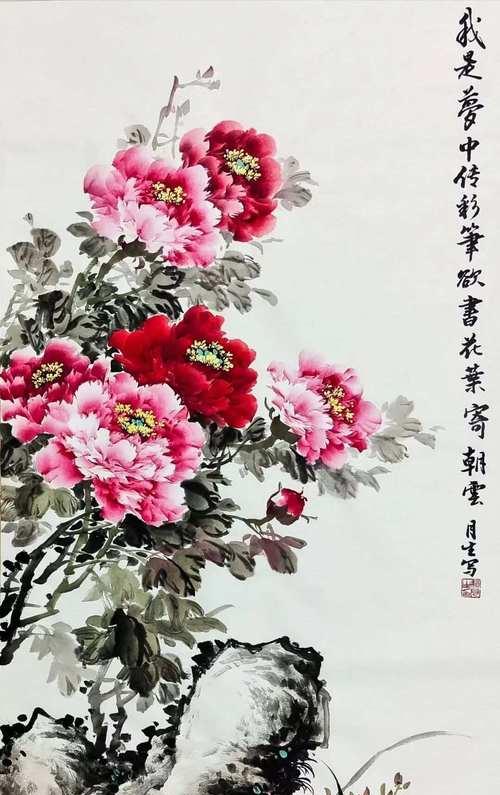 我是夢中传彩筆欲書花葉寄朝雲
月生写